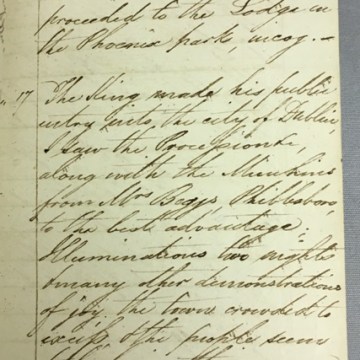 proceeded to the Lodge in
the Phoenix park, incog. –
17 The King made his public
entry into the city of Dublin,
I saw the Processions,
along with the
from Mrs Beggs, Phibsboro,
to the best advantage.
Illuminations two nights
& many other demonstrations
of joy. the town crowded to
excess, & the people seem